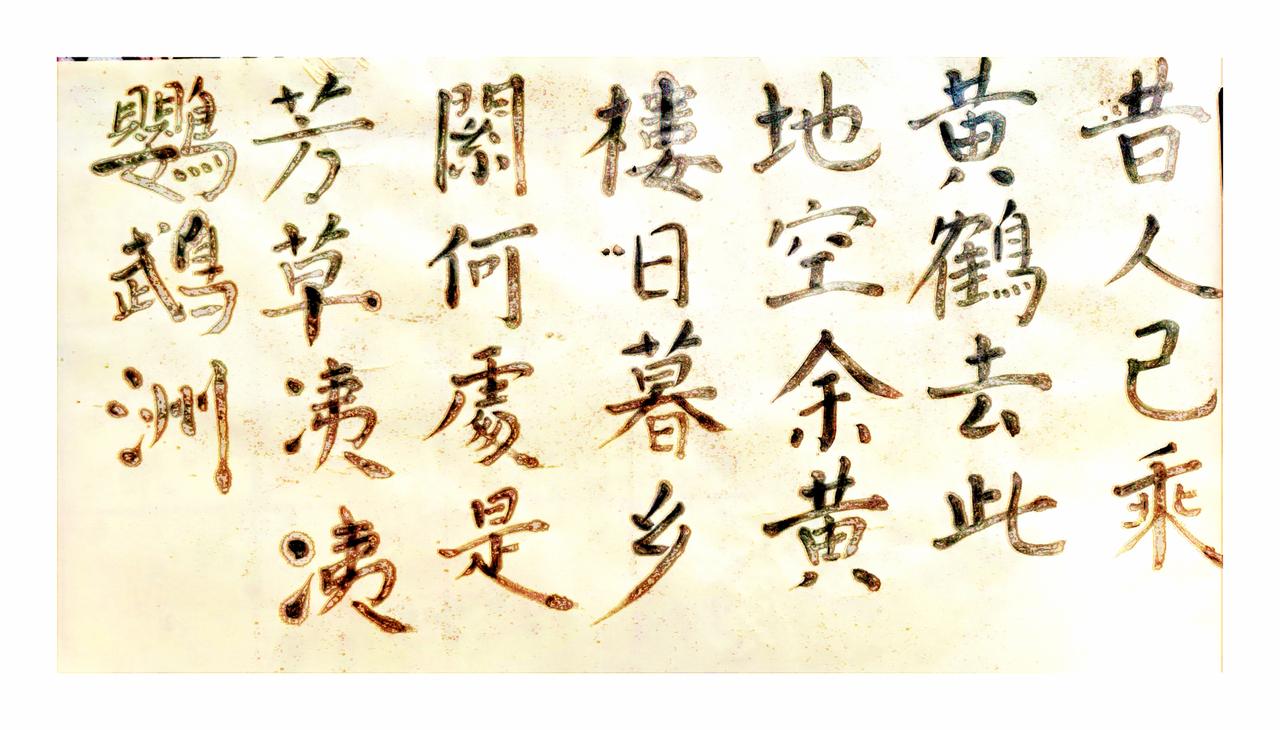 昔人已乘
黄鶴去此
地空余黄
樓日暮乡
關何處是
芳草凄凄
鸚鵡洲